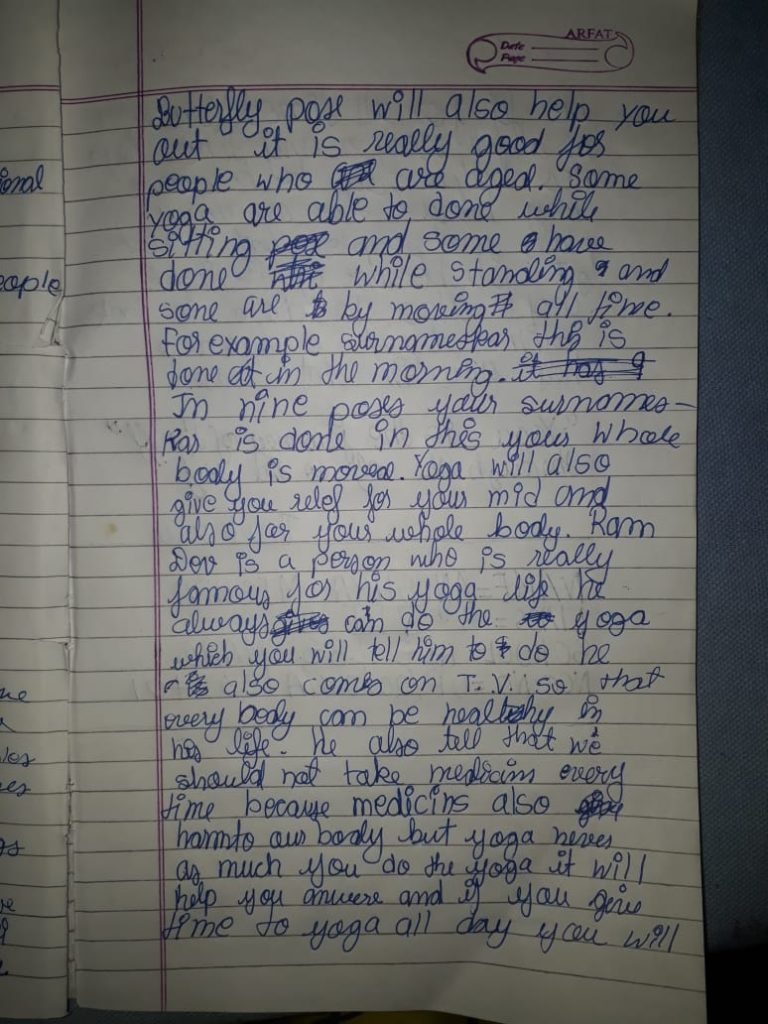 ARFAT
Date
Page
Butterfly pose will also help you
out it is really good for
people who are aged. Some
yoga are able to done while
sitting and some have
done while standing and
some are by moving all time.
For example surnameskar this is
done at in the morning.
In nine poses your surnames-
kar is done in this your whole
body is moved. Yoga will also
give you relef for your mid and
also for your whole body. Ram
Dev is a person who is really
famous for his yoga life he
always can do the yoga
which you will tell him to do he
also comes on T.V. so that
every body can be healthy in
his life. he also tell that we
should not take medicins every
time because medicins also
harm to our body but yoga never
as much you do the yoga it will
help you and if you give
time to yoga all day you will
ional
eople